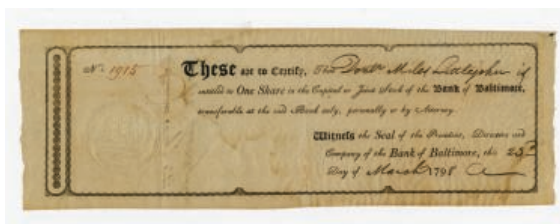 No. 1915
These are to Certify, That Doctr. Miles Littlejohn is
entitled to One Share in the Capital or Joint Stock of the Bank of Baltimore,
transferable at the said Bank only, personally or by Attorney.
Witness the Seal of the President, Directors and
Company of the Bank of Baltimore, this 23d
Day of March 1798